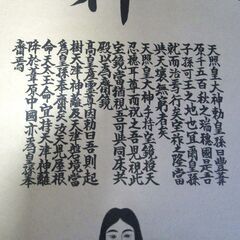 天照皇大神勅皇孫曰豊葦
原千五百秋之瑞穂國是吾
子孫可王之地也宜爾皇孫
就而治焉行矣宝祚之隆當
與天壌無窮者矣
天照皇大神手持宝鏡授天
忍穂耳尊而祝之曰吾児視此
宝鏡當猶視吾可與同床共
殿以為斎鏡
高皇産霊尊因勅曰吾則起
樹天津神籬及天津磐境當
為皇孫奉斎矣汝天児屋根
命天太玉命宜持天津神籬
降於葦原中國亦為皇孫奉
斎焉